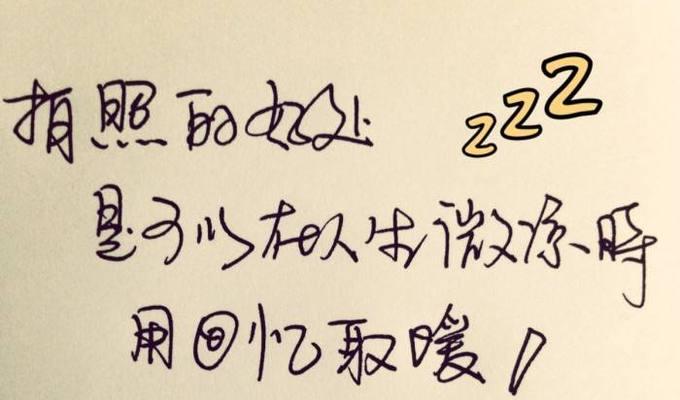 拍照的好处
zzz
是可以在人生微凉时
用回忆取暖!